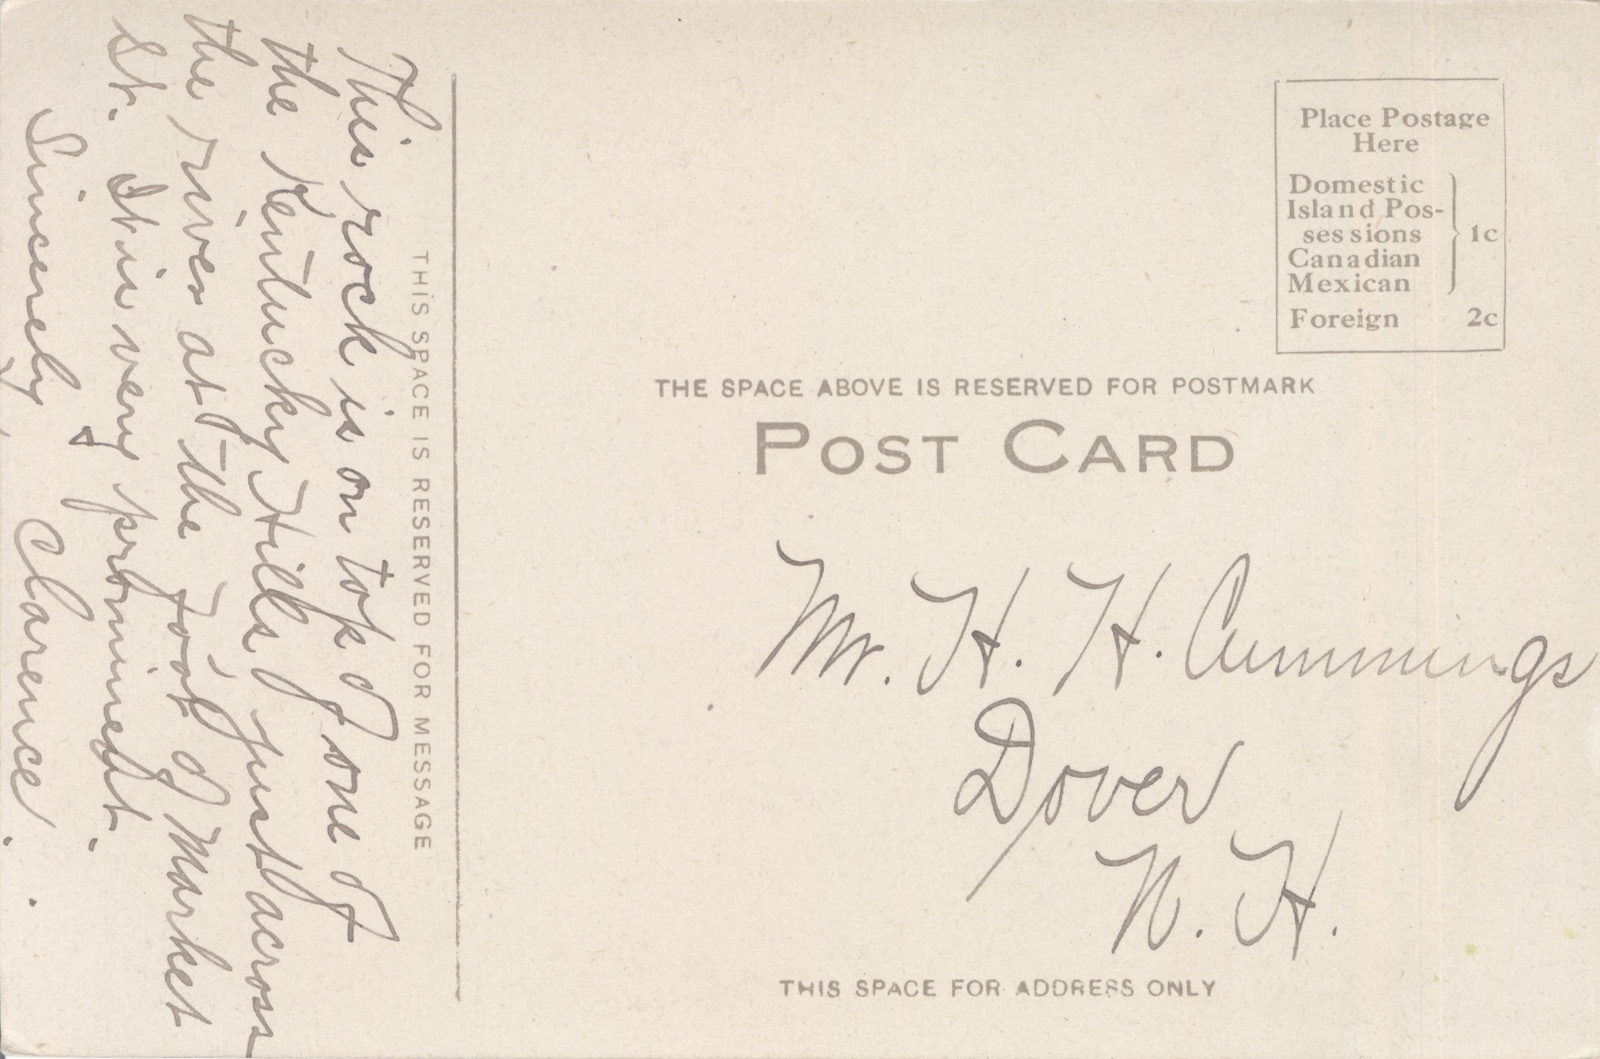 This rock is on top of one of
the Kentucky Hills just across
the river at the foot of Market
St. It is very prominent.
Sincerely,
Clarence.
THIS SPACE IS RESERVED FOR MESSAGE
Place Postage
Here
Domestic
Island Pos-
sessions
Canadian
Mexican
1c
Foreign 2c
THE SPACE ABOVE IS RESERVED FOR POSTMARK
POST CARD
Mr. H. H. Cummings
Dover
N. H.
THIS SPACE FOR ADDRESS ONLY